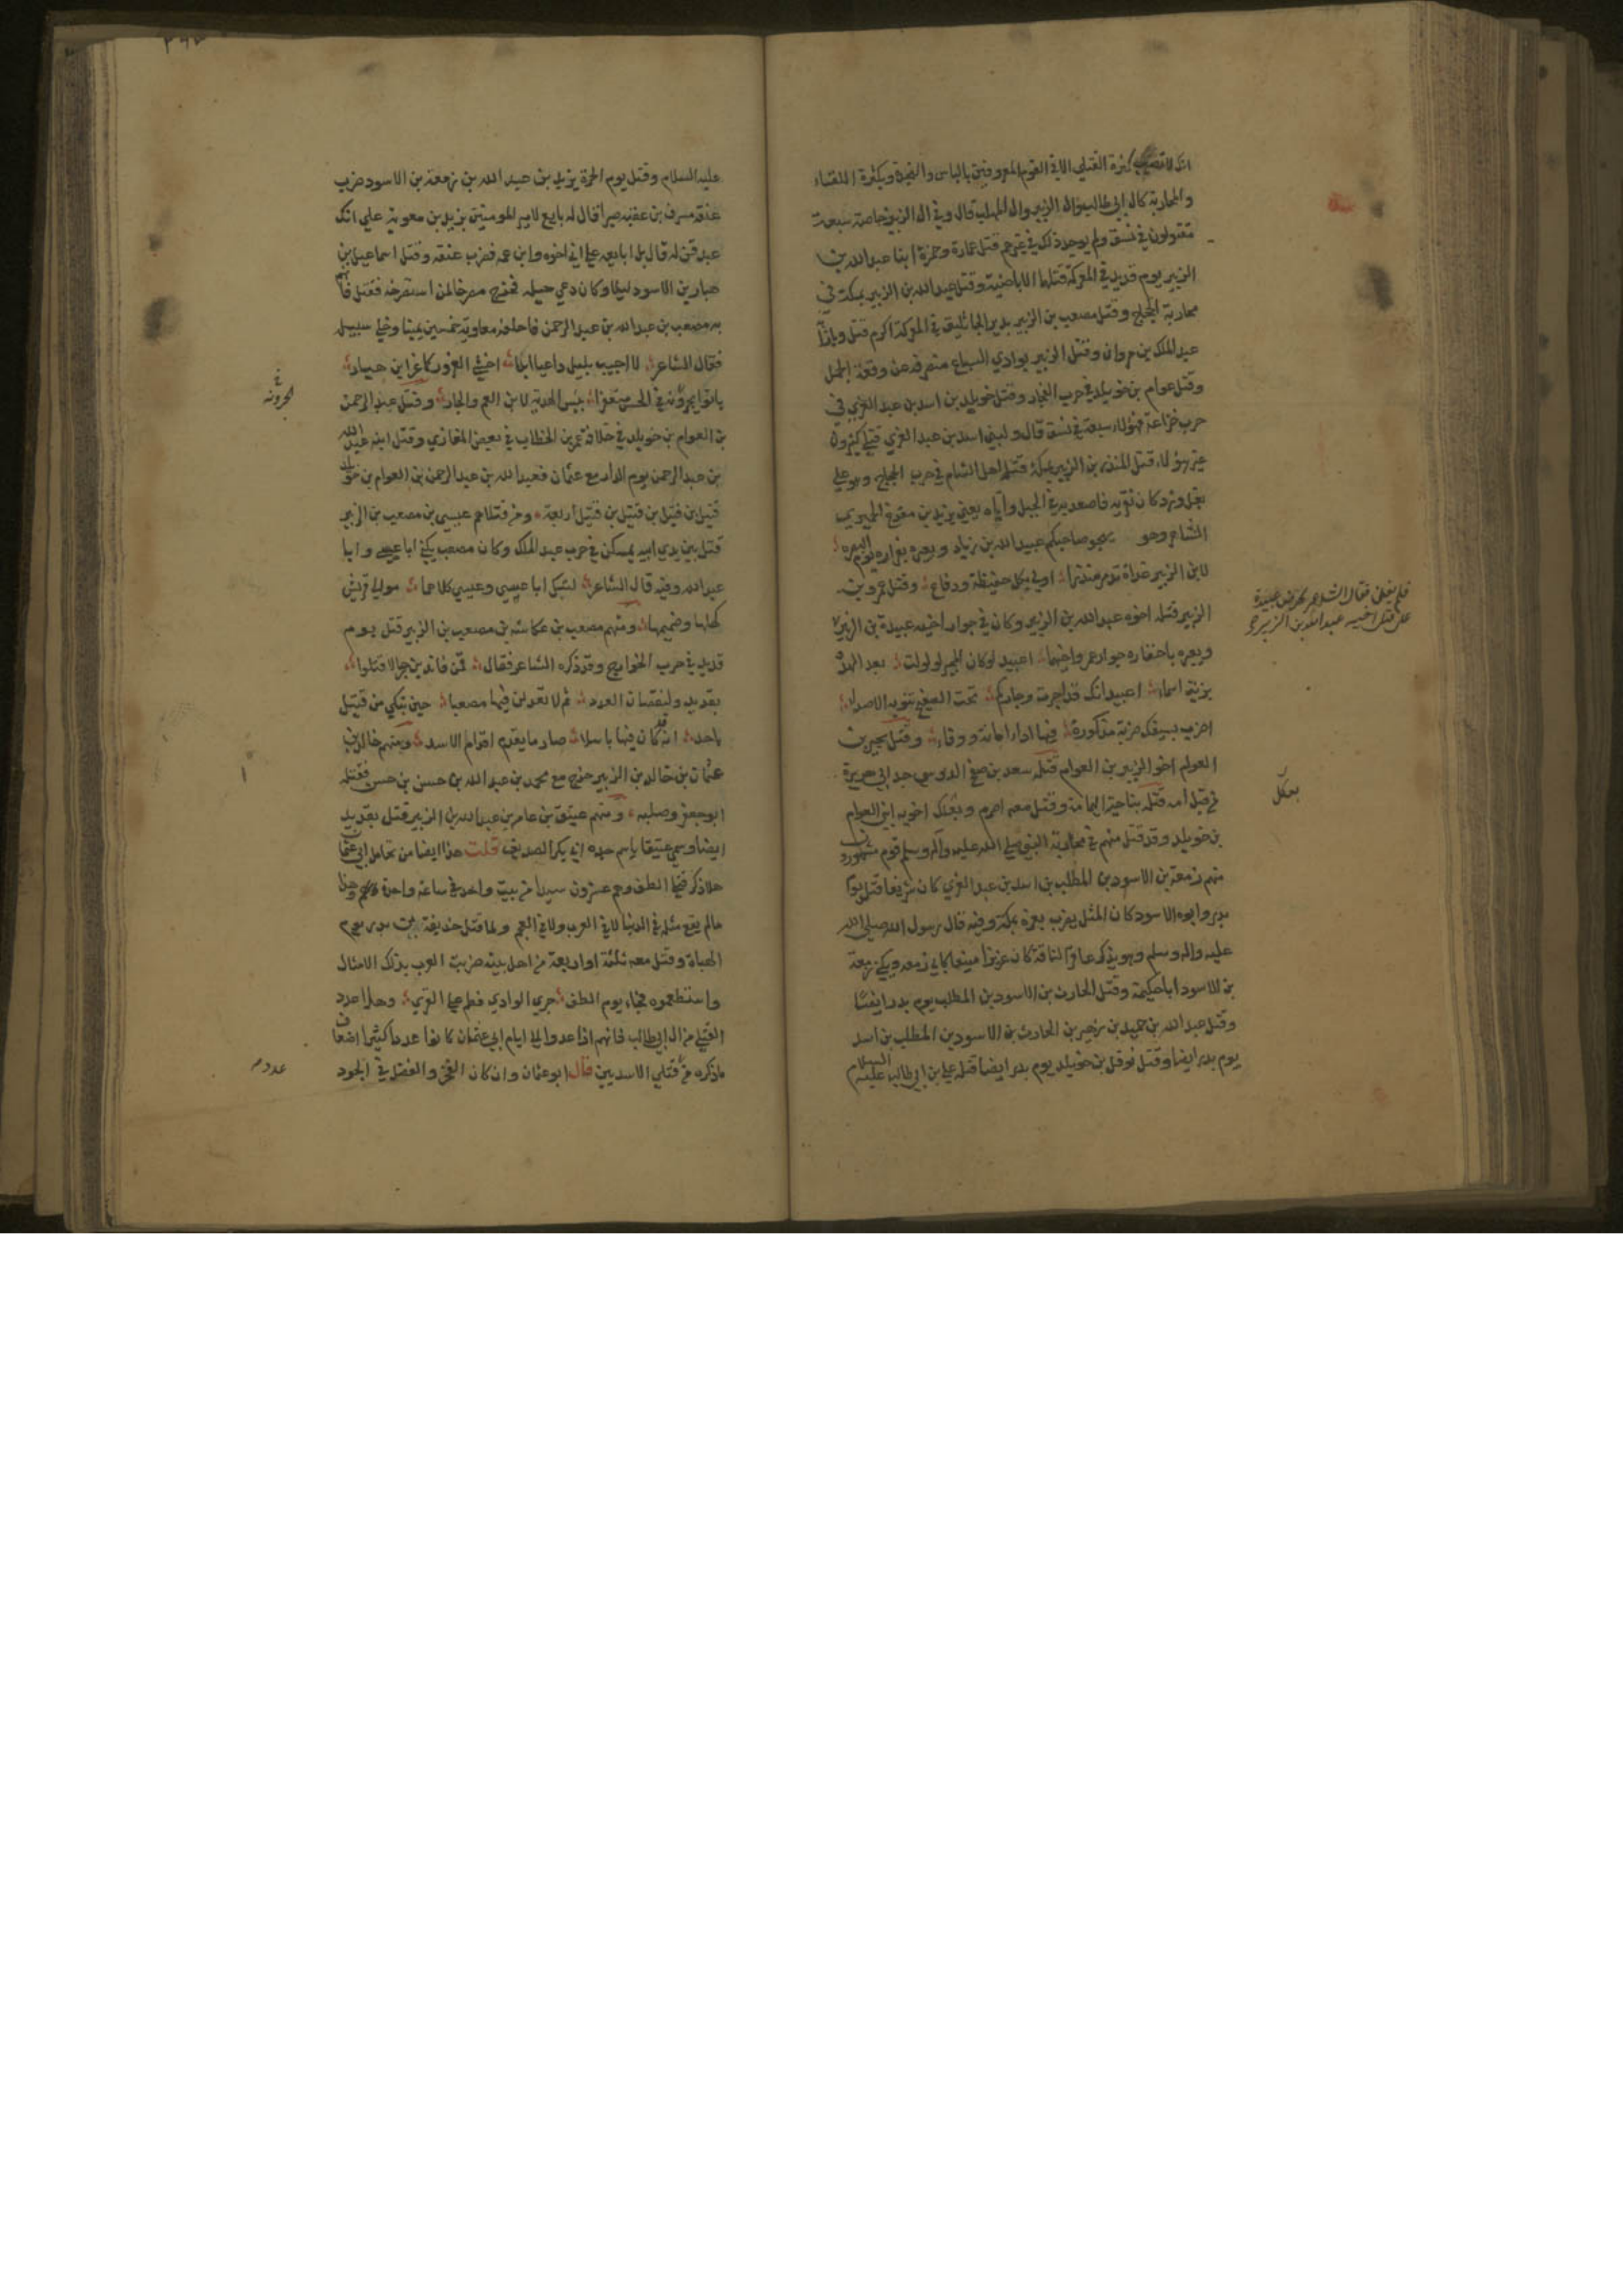 انك لا تصيب كثرة القتلى الا في القوم المعروفين بالباس والنجدة وبكثرة اللقاء
والمحاربة كال ابي طالب وال الزبير وال المهلب قال وفي ال الزبير خاصة سبعة
مقتولون في نسق ولم يوجد ذلك في غيرهم قتل عمارة وحمزة ابنا عبد الله بن
الزبير يوم قديد في المعركة قتلهما الاباضية وقتل عبد الله بن الزبير بمكة في
محاربة الحجاج وقتل مصعب بن الزبير بدير الجاثليق في المعركة اكرم قتل وبازا
عبد الملك بن مروان وقتل الزبير بوادي السباع منصرفه من وقعة الجمل
وقتل عوام بن خويلد في حرب الفجار وقتل خويلد بن اسد بن عبد العزي في
حرب خزاعة فهؤلاء سبعة في نسق قال ولبني اسد بن عبد العزي قتلى كثيرون
غير هؤلاء قتل المنذر بن الزبير بمكة قتله اهل الشام في حرب الحجاج وهو علي
بغل ورد كان نفر به فاصعد به في الجبل واياه يعني يزيد بن مفرغ الحميري
الشاعر وهو يهجو صاحبكم عبيد الله بن زياد ويعيره بفراره يوم البصرة
لابن الزبير غداة تدمر منذرا اولى بكل حفيظة ودفاع وقتل عمرو بن
الزبير قتله اخوه عبد الله بن الزبير وكان في جوار اخيه عبيدة بن الزبير
فلم يغن فقال الشاعر يحرض عبيدة
على قتل اخيه عبد الله بن الزبير
ويعيره باخفاره جوار عمرو اخيهما اعبيد لو كان المجير لولولت بعد الهدو
برنة اسماء اعبيد انك قد اجرت وجاركم تحت الصفيح تنوبه الاصداء
اضرب بسيفك ضربة مذكورة فيها اداء امانة ووفاء وقتل بجير بن
العوام اخو الزبير بن العوام قتله سعد بن صفح الدوسي جد ابي هريرة
من قبل امه قتله بناحية اليمامة وقتل معه اصرم وبعكك اخويه ابني العوام
بعكك
بن خويلد وقد قتل منهم في محاربة النبي صلى الله عليه وآله وسلم قوم مشهورون
منهم زمعة بن الاسود بن المطلب بن اسد بن عبد العزي كان شريفا قتل يوم
بدر وابوه الاسود كان المثل يضرب بعزه بمكة وفيه قال رسول الله صلى الله
عليه واله وسلم وهو يذكر عاقر الناقة كان عزيزا منيعا كابي زمعة ويكنى زمعة
بن الاسود ابا حكيمة وقتل الحارث بن الاسود بن المطلب يوم بدر ايضا
وقتل عبد الله بن حميد بن زهير بن الحارث بن الاسود بن المطلب بن اسد
يوم بدر ايضا وقتل نوفل بن خويلد يوم بدر ايضا قتله علي بن ابي طالب عليه السلام
عليه السلام وقتل يوم الحرة يزيد بن عبد الله بن زمعة بن الاسود ضرب
عنقه مسرف بن عقبه صبرا قال له بايع لامير المومنين يزيد بن معوية علي انك
عبد قن له قال بل ابايعه علي اني اخوه وابن عمه فضرب عنقه وقتل اسماعيل بن
هبار بن الاسود ليلا وكان دعي حيلة فخرج مصرخا لمن استصرخه فقتل فاتهم
به مصعب بن عبد الله بن عبد الرحمن فاحلفه معاوية خمسين يمينا وخلي سبيله
فقال الشاعر لا اجيب بليل داعيا ابدا اخشى الغرور كما غر ابن هبار
باتوا يجرونه في الحش منعفرا بئس الهدية لابن العم والجار وقتل عبد الرحمن
بن العوام بن خويلد في خلافة عمر بن الخطاب في بعض المغازي وقتل ابنه عبد الله
بن عبد الرحمن يوم الدار مع عثمان فعبد الله بن عبد الرحمن بن العوام بن خويلد
قتيل بن قتيل بن قتيل بن قتيل اربعة ومن قتلاهم عيسى بن مصعب بن الزبير
قتل بين يدي ابيه بمسكن في حرب عبد الملك وكان مصعب يكنى ابا عيسى وابا
عبد الله وفيه قال الشاعر لتبك ابا عيسي وعيسي كلاهما موالي قريش
كهلها وصميمها ومنهم مصعب بن عكاشة بن مصعب بن الزبير قتل يوم
قديد في حرب الخوارج وقد ذكره الشاعر فقال قمن فاندبن رجالا قتلوا
بقديد ولنقصان العدد ثم لا تعدلن فيها مصعبا حين تبكي من قتيل
باحد انه قد كان فيها باسلا صارما يقدم اقدام الاسد ومنهم خالد بن
عثمان بن خالد بن الزبير خرج مع محمد بن عبد الله بن حسن بن حسن فقتله
ابو جعفر وصلبه ومنهم عتيق بن عامر بن عبد الله بن الزبير قتل بقديد
ايضا وسمي عتيقا باسم جده ابي بكر الصديق قلت هذا ايضا من تحامل ابي عثمان
هلا ذكر قتلى الطف وهم عشرون سيدا من بيت واحد في ساعة واحدة وهذا
مالم يقع مثله في الدنيا لا في العرب ولا في العجم ولما قتل حذيفة بن بدر يوم
الهباة وقتل معه ثلثة او اربعة من اهل بيته ضربت العرب بذلك الامثال
واستعظموه فجاء يوم الطف جري الوادي فطم على القري وهلا عدد
القتلى من ال ابي طالب فانهم اذا عدوا الى ايام ابي عثمان كانوا عددا كثيرا اضعاف
ماذكره من قتلي الاسديين قال ابو عثمان وان كان الفخر والفضل في الجود